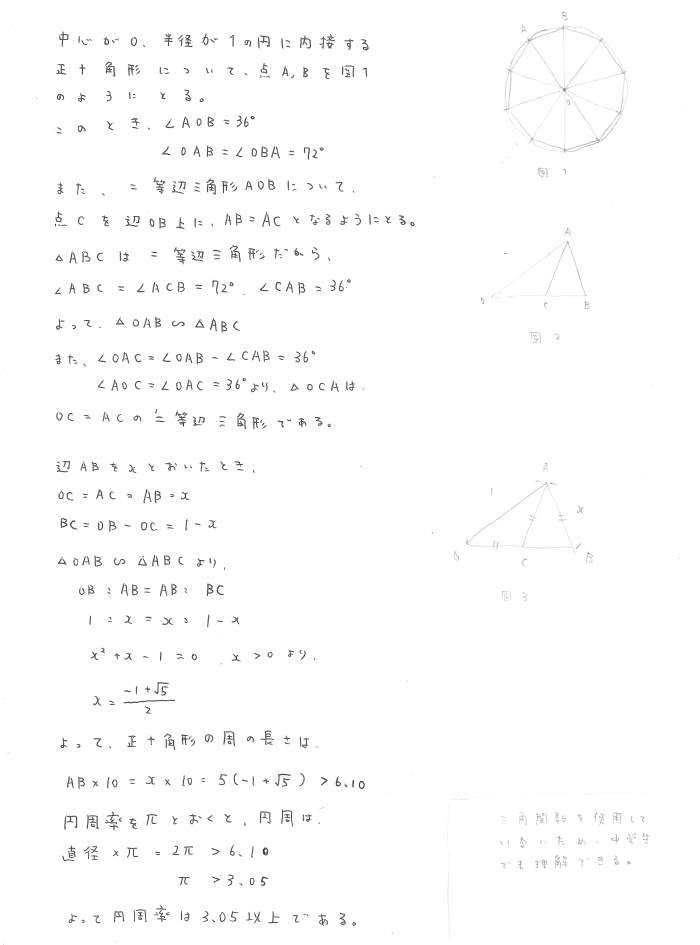 中心がO、半径が1の円に内接する
正十角形について、点A,Bを図1
のようにとる。
このとき、∠AOB=36°
∠OAB=∠OBA=72°
また、二等辺三角形AOBについて、
点Cを辺OB上に、AB=ACとなるようにとる。
△ABCは二等辺三角形だから、
∠ABC=∠ACB=72°、∠CAB=36°
よって、△OAB∽△ABC
また、∠OAC=∠OAB-∠CAB=36°
∠AOC=∠OAC=36°より、△OCAは、
OC=ACの二等辺三角形である。
辺ABをxとおいたとき、
OC=AC=AB=x
BC=OB-OC=1-x
△OAB∽△ABCより、
OB:AB=AB:BC
1:x=x:1-x
x²+x-1=0 x>0より、
x=(-1+√5)/2
よって、正十角形の周の長さは、
AB×10=x×10=5(-1+√5)>6.10
円周率をπとおくと、円周は、
直径×π=2π>6.10
π>3.05
よって円周率は3.05以上である。
B
A
O
図1
A
O C B
図2
A
1 x
O C B
図3
三角関数を使用して
いないため、中学生
でも理解できる。